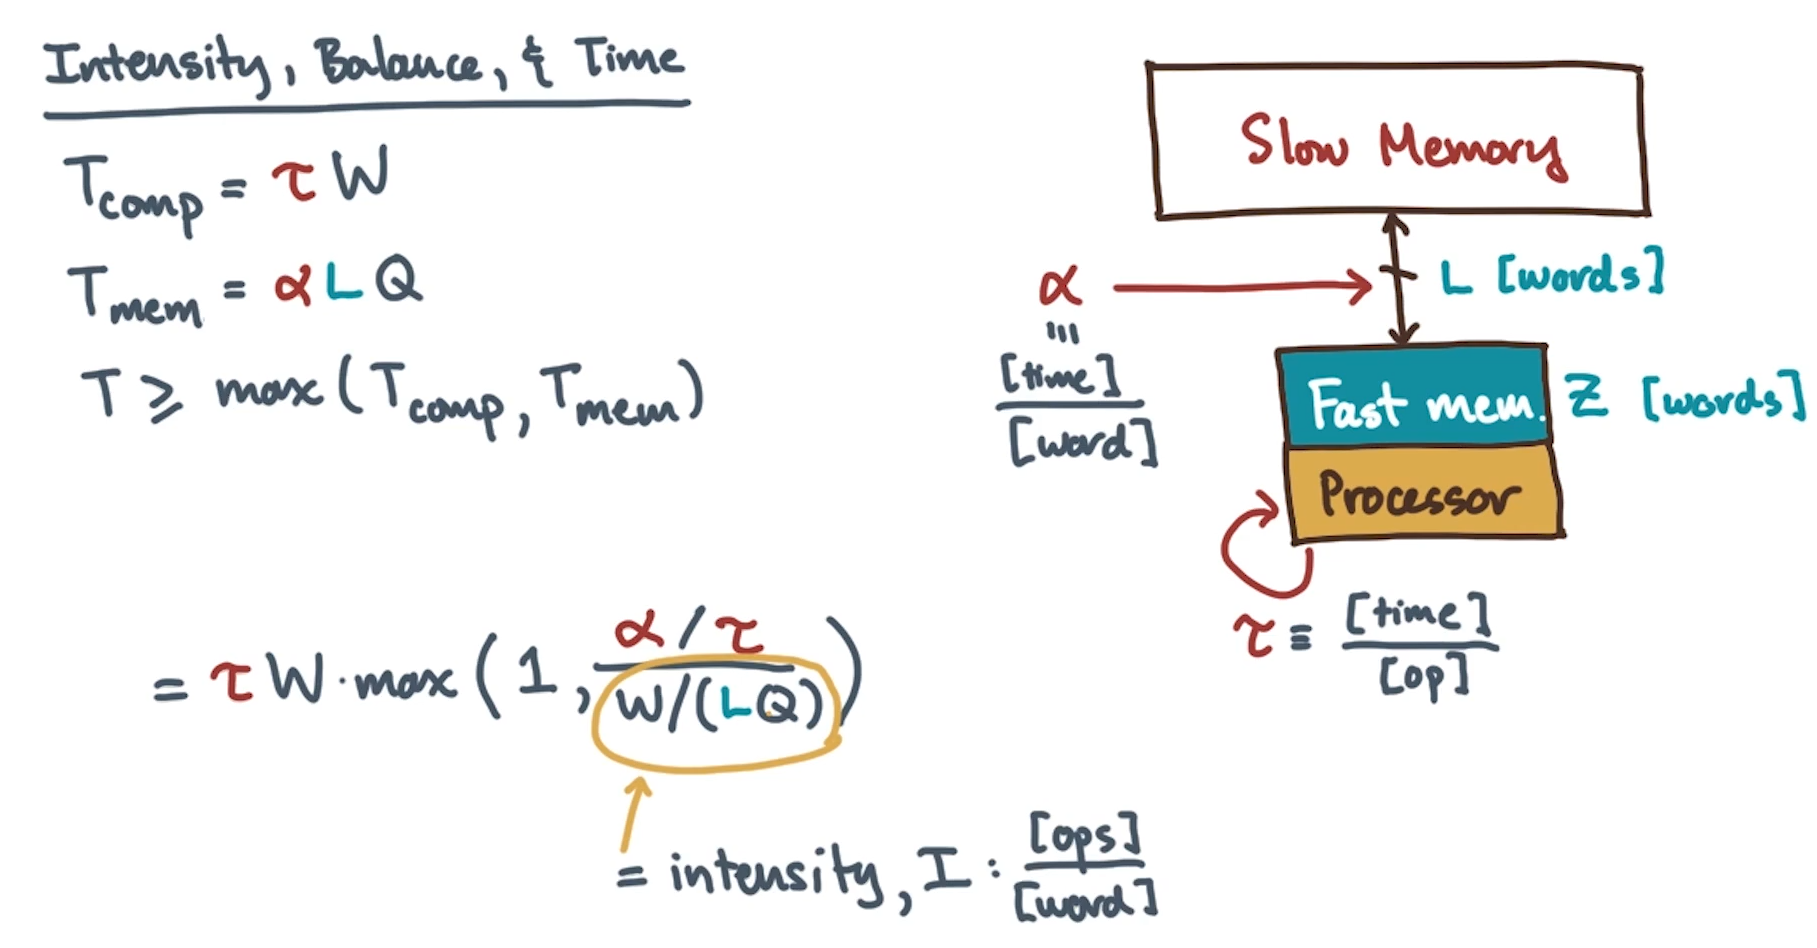 Intensity, Balance, & Time
T_comp = τ W
T_mem = α L Q
T ≥ max(T_comp, T_mem)
= τ W · max(1, (α/τ)/(W/(LQ)))
= intensity, I : [ops]/[word]
Slow Memory
α
≡
[time]
[word]
L [words]
Fast mem.
Z [words]
Processor
τ ≡ [time]/[op]